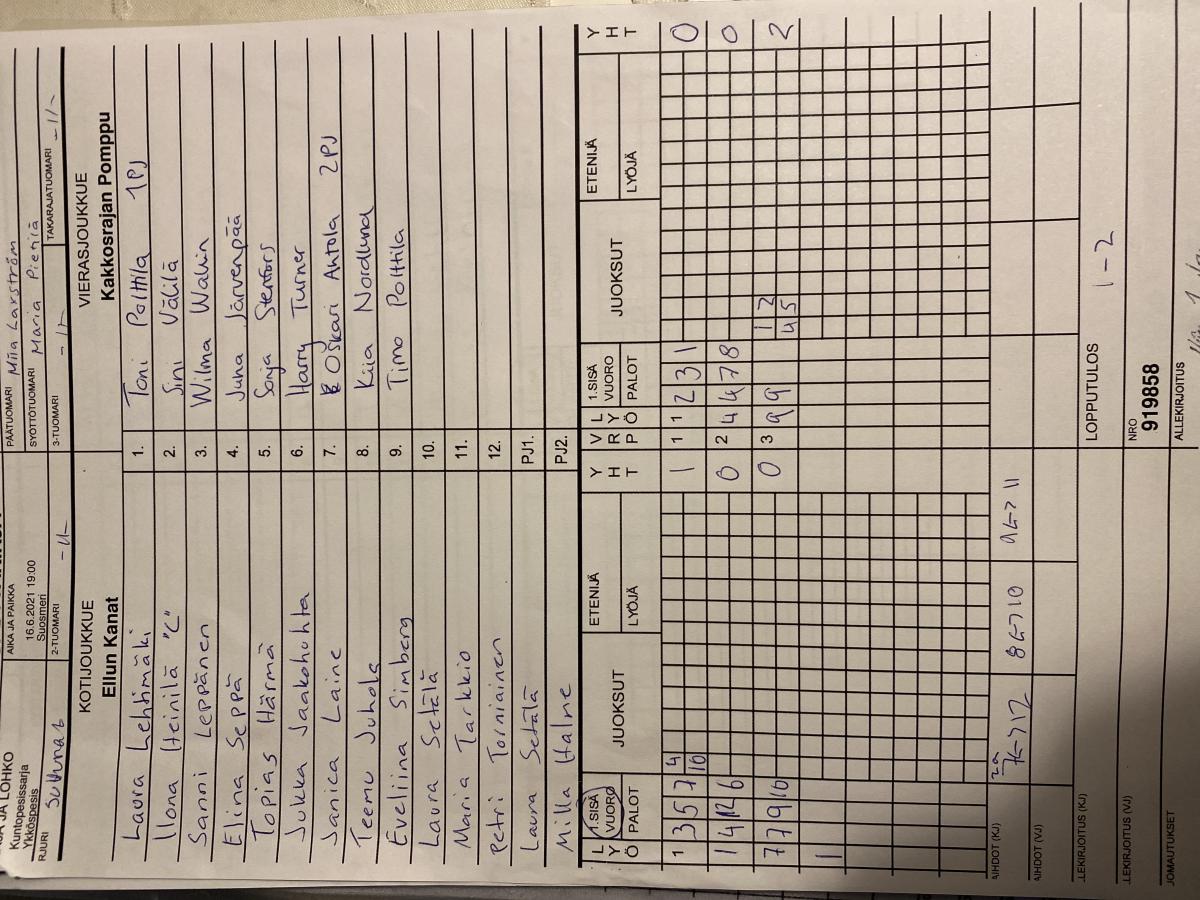 JA LOHKO
Kuntopesissarja
Ykköspesis
AIKA JA PAIKKA
16.6.2021 19:00
Suosmeri
PÄÄTUOMARI Miia Larström
SYÖTTÖTUOMARI Maria Pietilä
2-TUOMARI -11-
3-TUOMARI -11-
TAKARAJATUOMARI -11-
KOTIJOUKKUE
Ellun Kanat
VIERASJOUKKUE
Kakkosrajan Pomppu
Laura Lehtimäki 1. Toni Polttila 1PJ
Ilona Heinilä "C" 2. Sini Välilä
Sanni Leppänen 3. Wilma Walin
Elina Seppä 4. Juha Järvenpää
Topias Härmä 5. Sonja Stenfors
Jukka Jaakohuhta 6. Harry Turner
Janica Laine 7. Oskari Antola 2PJ
Teemu Juhola 8. Kiia Nordlund
Eveliina Simberg 9. Timo Polttila
Laura Setälä 10.
Maria Tarkkio 11.
Petri Torniainen 12.
Laura Setälä PJ1.
Milla Halne PJ2.
LYÖ 1.SISÄ VUORO PALOT JUOKSUT ETENIJÄ LYÖJÄ YHT VRP LYÖ 1.SISÄ VUORO PALOT JUOKSUT ETENIJÄ LYÖJÄ YHT
1 3 5 7 4 10 1 1 1 2 3 1 0
1 4 12 6 0 2 4 4 7 8 0
7 7 9 10 0 3 9 9 1 2 4 5 2
1
AIHDOT (KJ) 7<->12 8<->10 9<->11
AIHDOT (VJ)
LEKIRJOITUS (KJ) LOPPUTULOS
1-2
LEKIRJOITUS (VJ) NRO
919858
JOMAUTUKSET ALLEKIRJOITUS